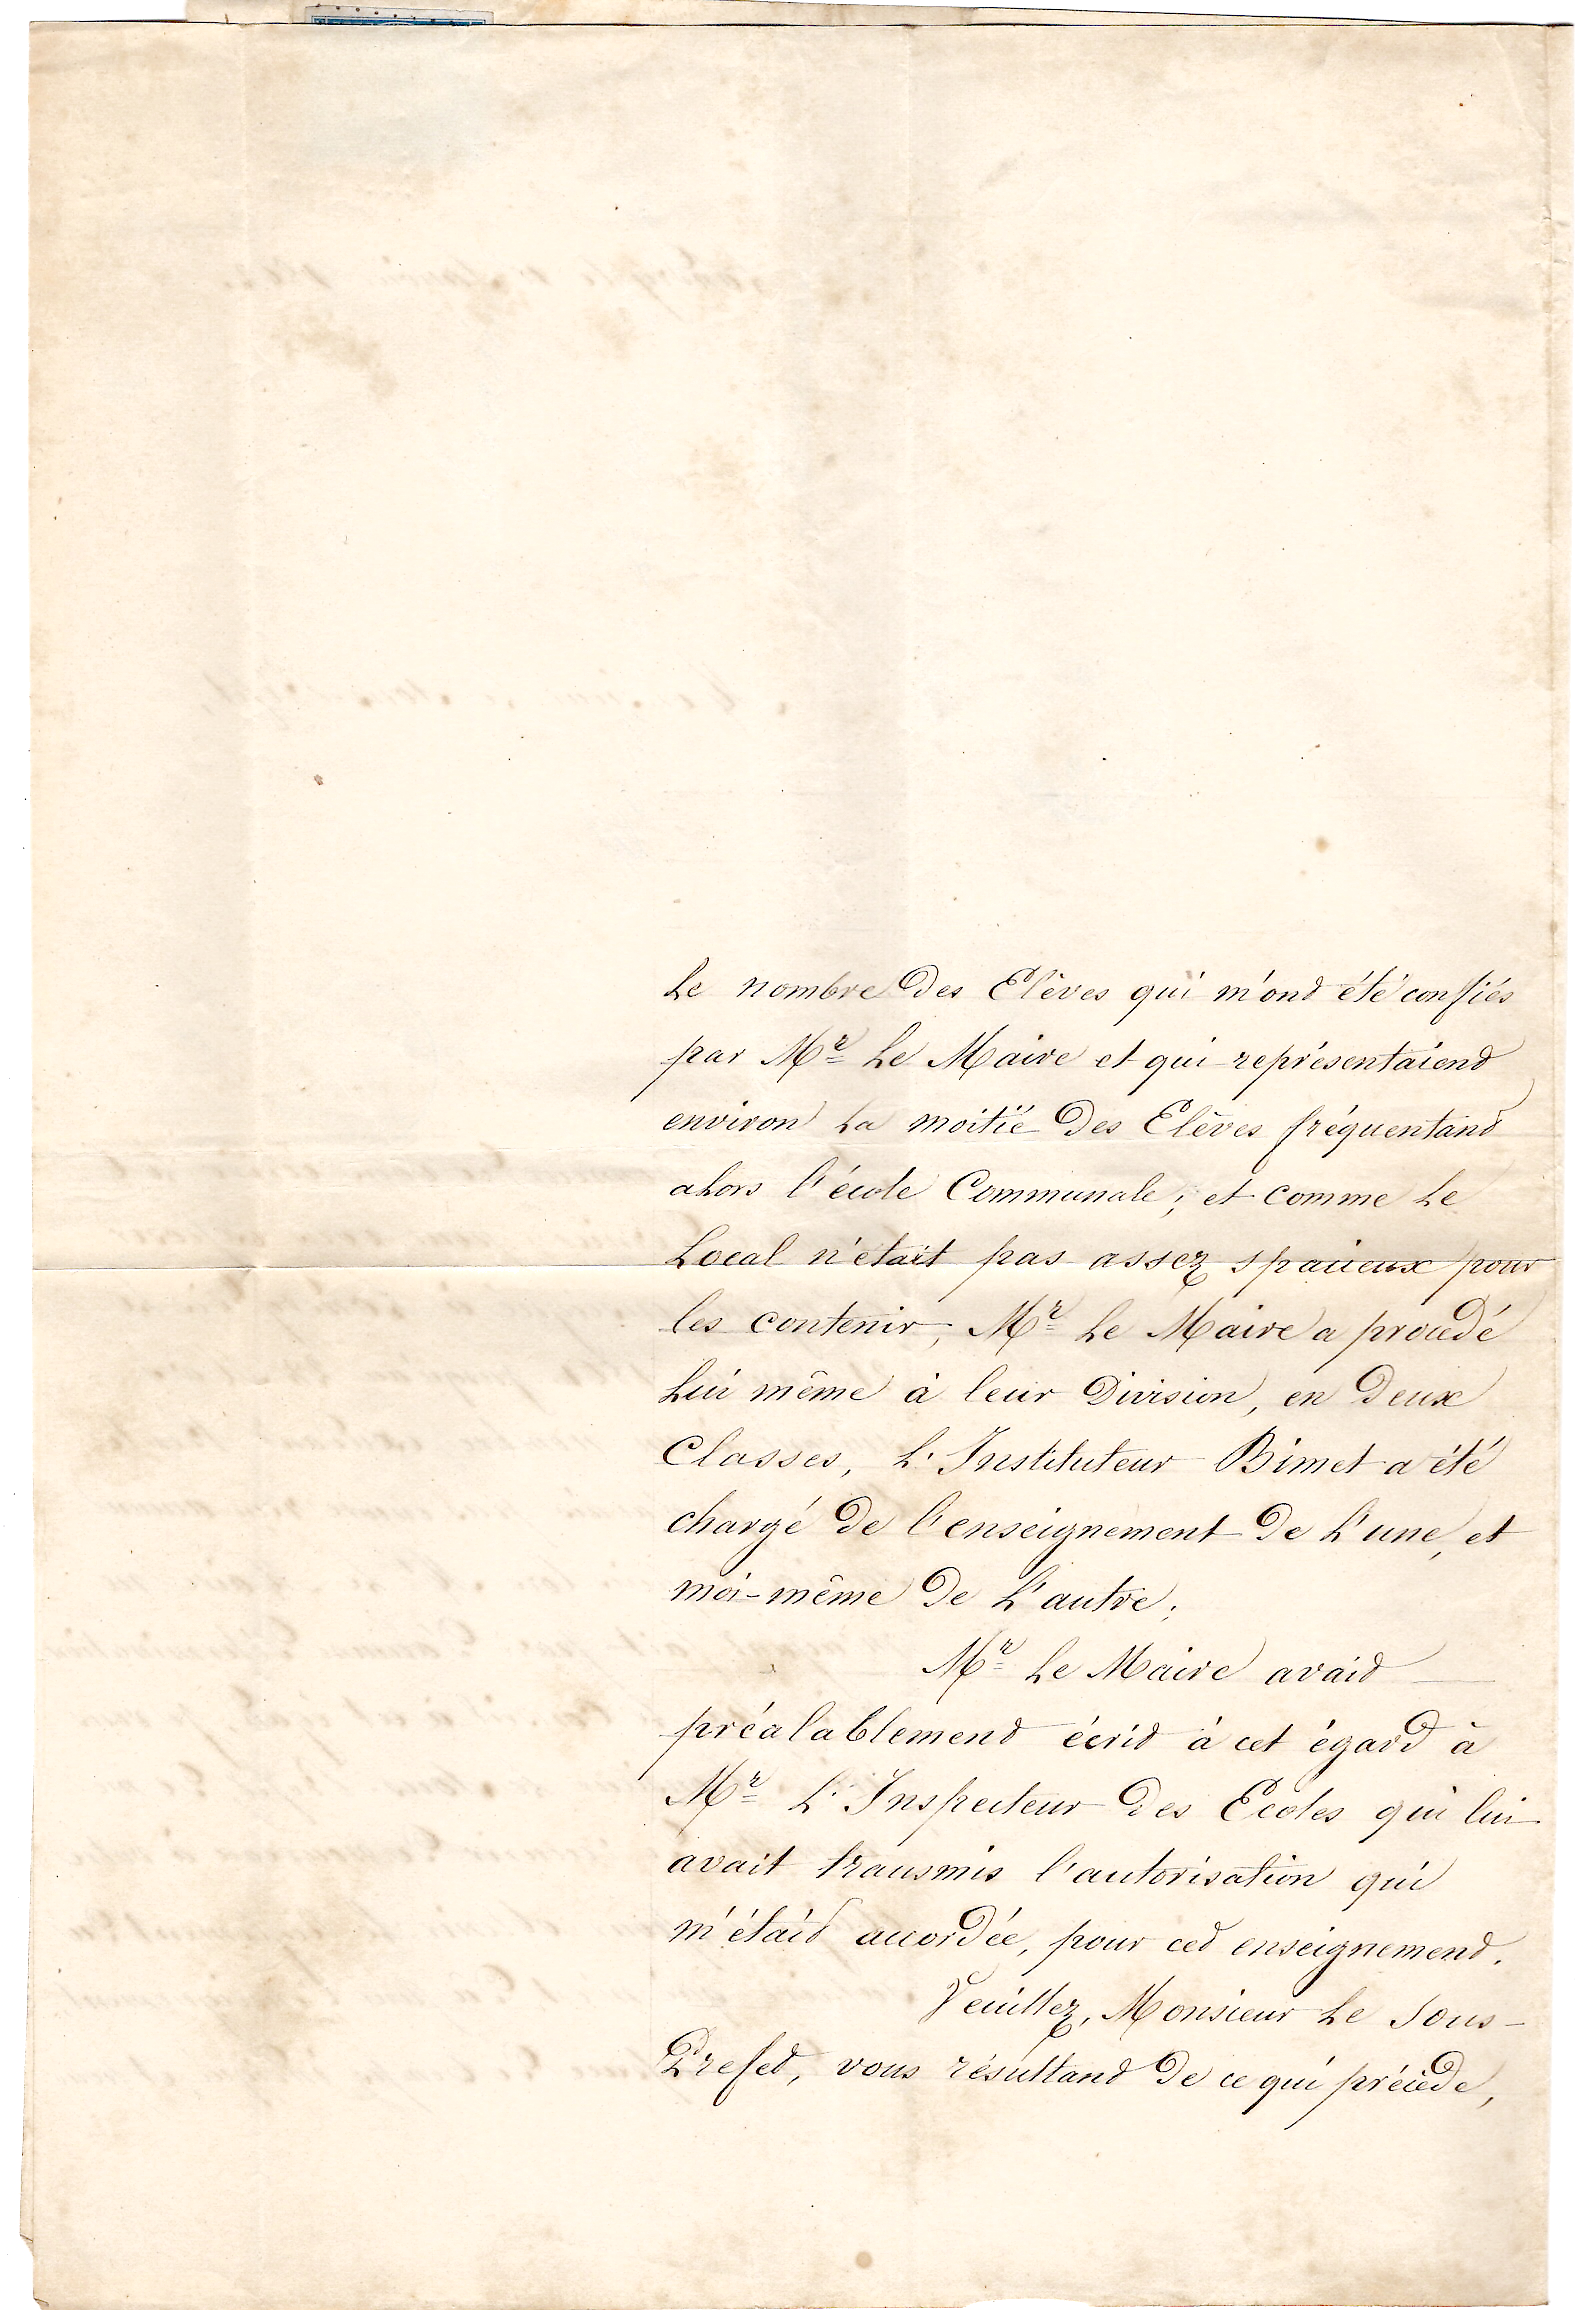 Le nombre des Elèves qui m'ont été confiés
par Mr Le Maire et qui représentaient
environ La moitié des Elèves fréquentant
alors l'école Communale; et comme Le
Local n'était pas assez spacieux pour
les contenir, Mr Le Maire a procédé
Lui même à leur Division, en Deux
Classes, L'Instituteur Bimet a été
chargé de l'enseignement de L'une, et
moi-même de L'autre;
Mr Le Maire avait
préalablement écrit à cet égard à
Mr L'Inspecteur des Ecoles qui lui
avait transmis l'autorisation qui
m'était accordée, pour cet enseignement.
Veuillez, Monsieur Le Sous-
Prefet, vous résultant de ce qui précède,